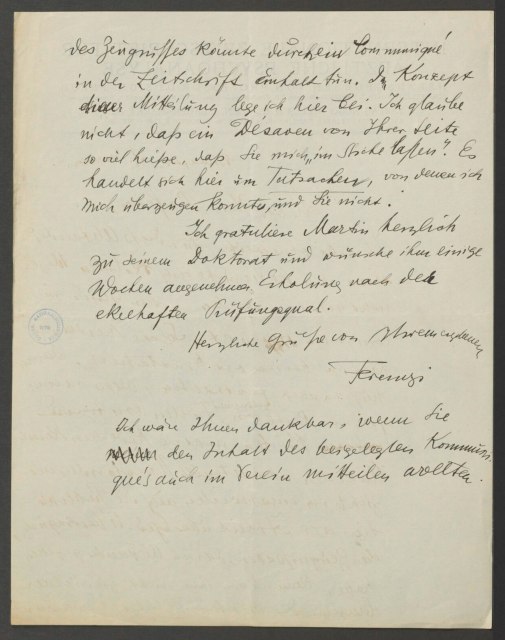 des Zeugnisses könnte durch ein Communiqué
in der Zeitschrift Einhalt tun. Das Konzept
dieser Mitteilung lege ich hier bei. Ich glaube
nicht, daß ein Désaveu von Ihrer Seite
so viel hieße, daß Sie mich „im Stiche lassen“. Es
handelt sich hier um Tatsachen, von denen ich
mich überzeugen konnte, und Sie nicht.
Ich gratuliere Martin herzlich
zu seinem Doktorat und wünsche ihm einige
Wochen angenehmer Erholung nach der
ekelhaften Prüfungsqual.
Herzliche Grüße von Ihrem ergebenen
Ferenczi
Ich wäre Ihnen dankbar, wenn Sie
den Inhalt des beigelegten Kommuni-
qué's auch im Verein mitteilen wollten.